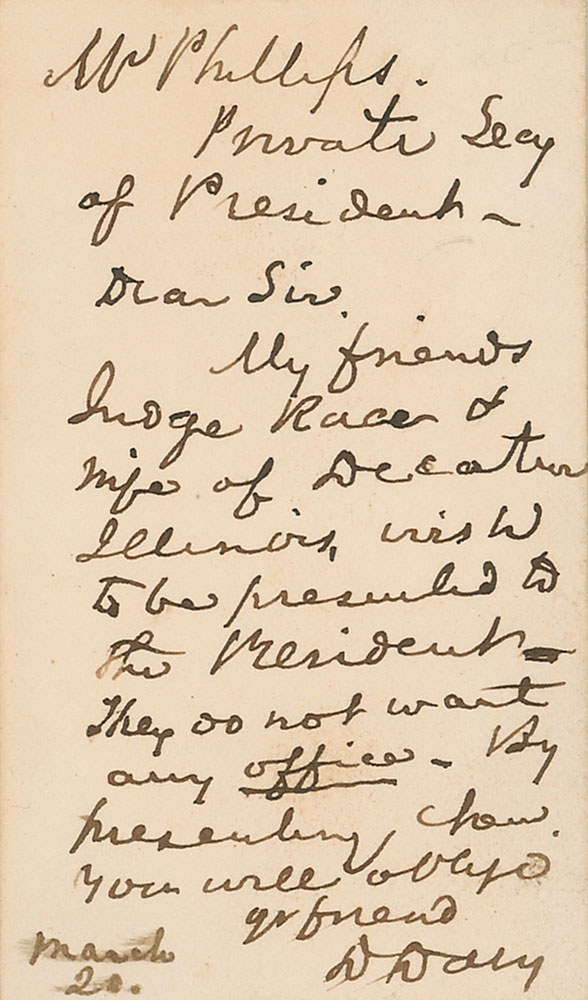 Mr Phillips.
Private Secy
of President -
Dear Sir.
My friends
Judge Racer &
wife of Decatur
Illinois, wish
to be presented to
the President -
They do not want
any office - By
presenting them.
You will oblige
yr friend
D Davis
March
20.